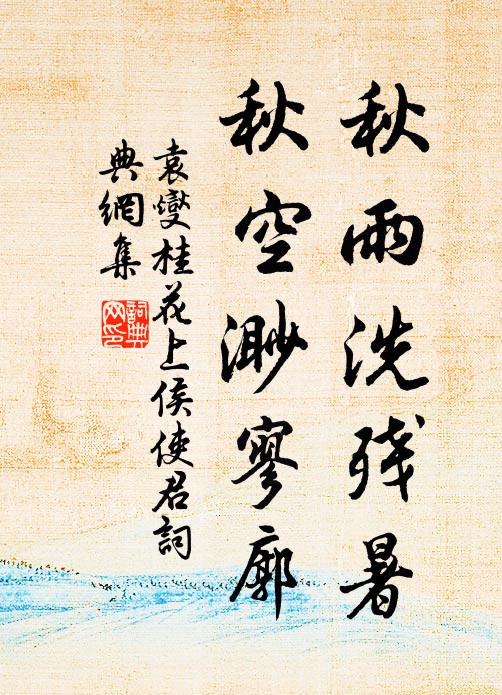 秋雨洗残暑
秋空渺寥廓
袁燮桂花上侯使君詞
典網集
詞典網印